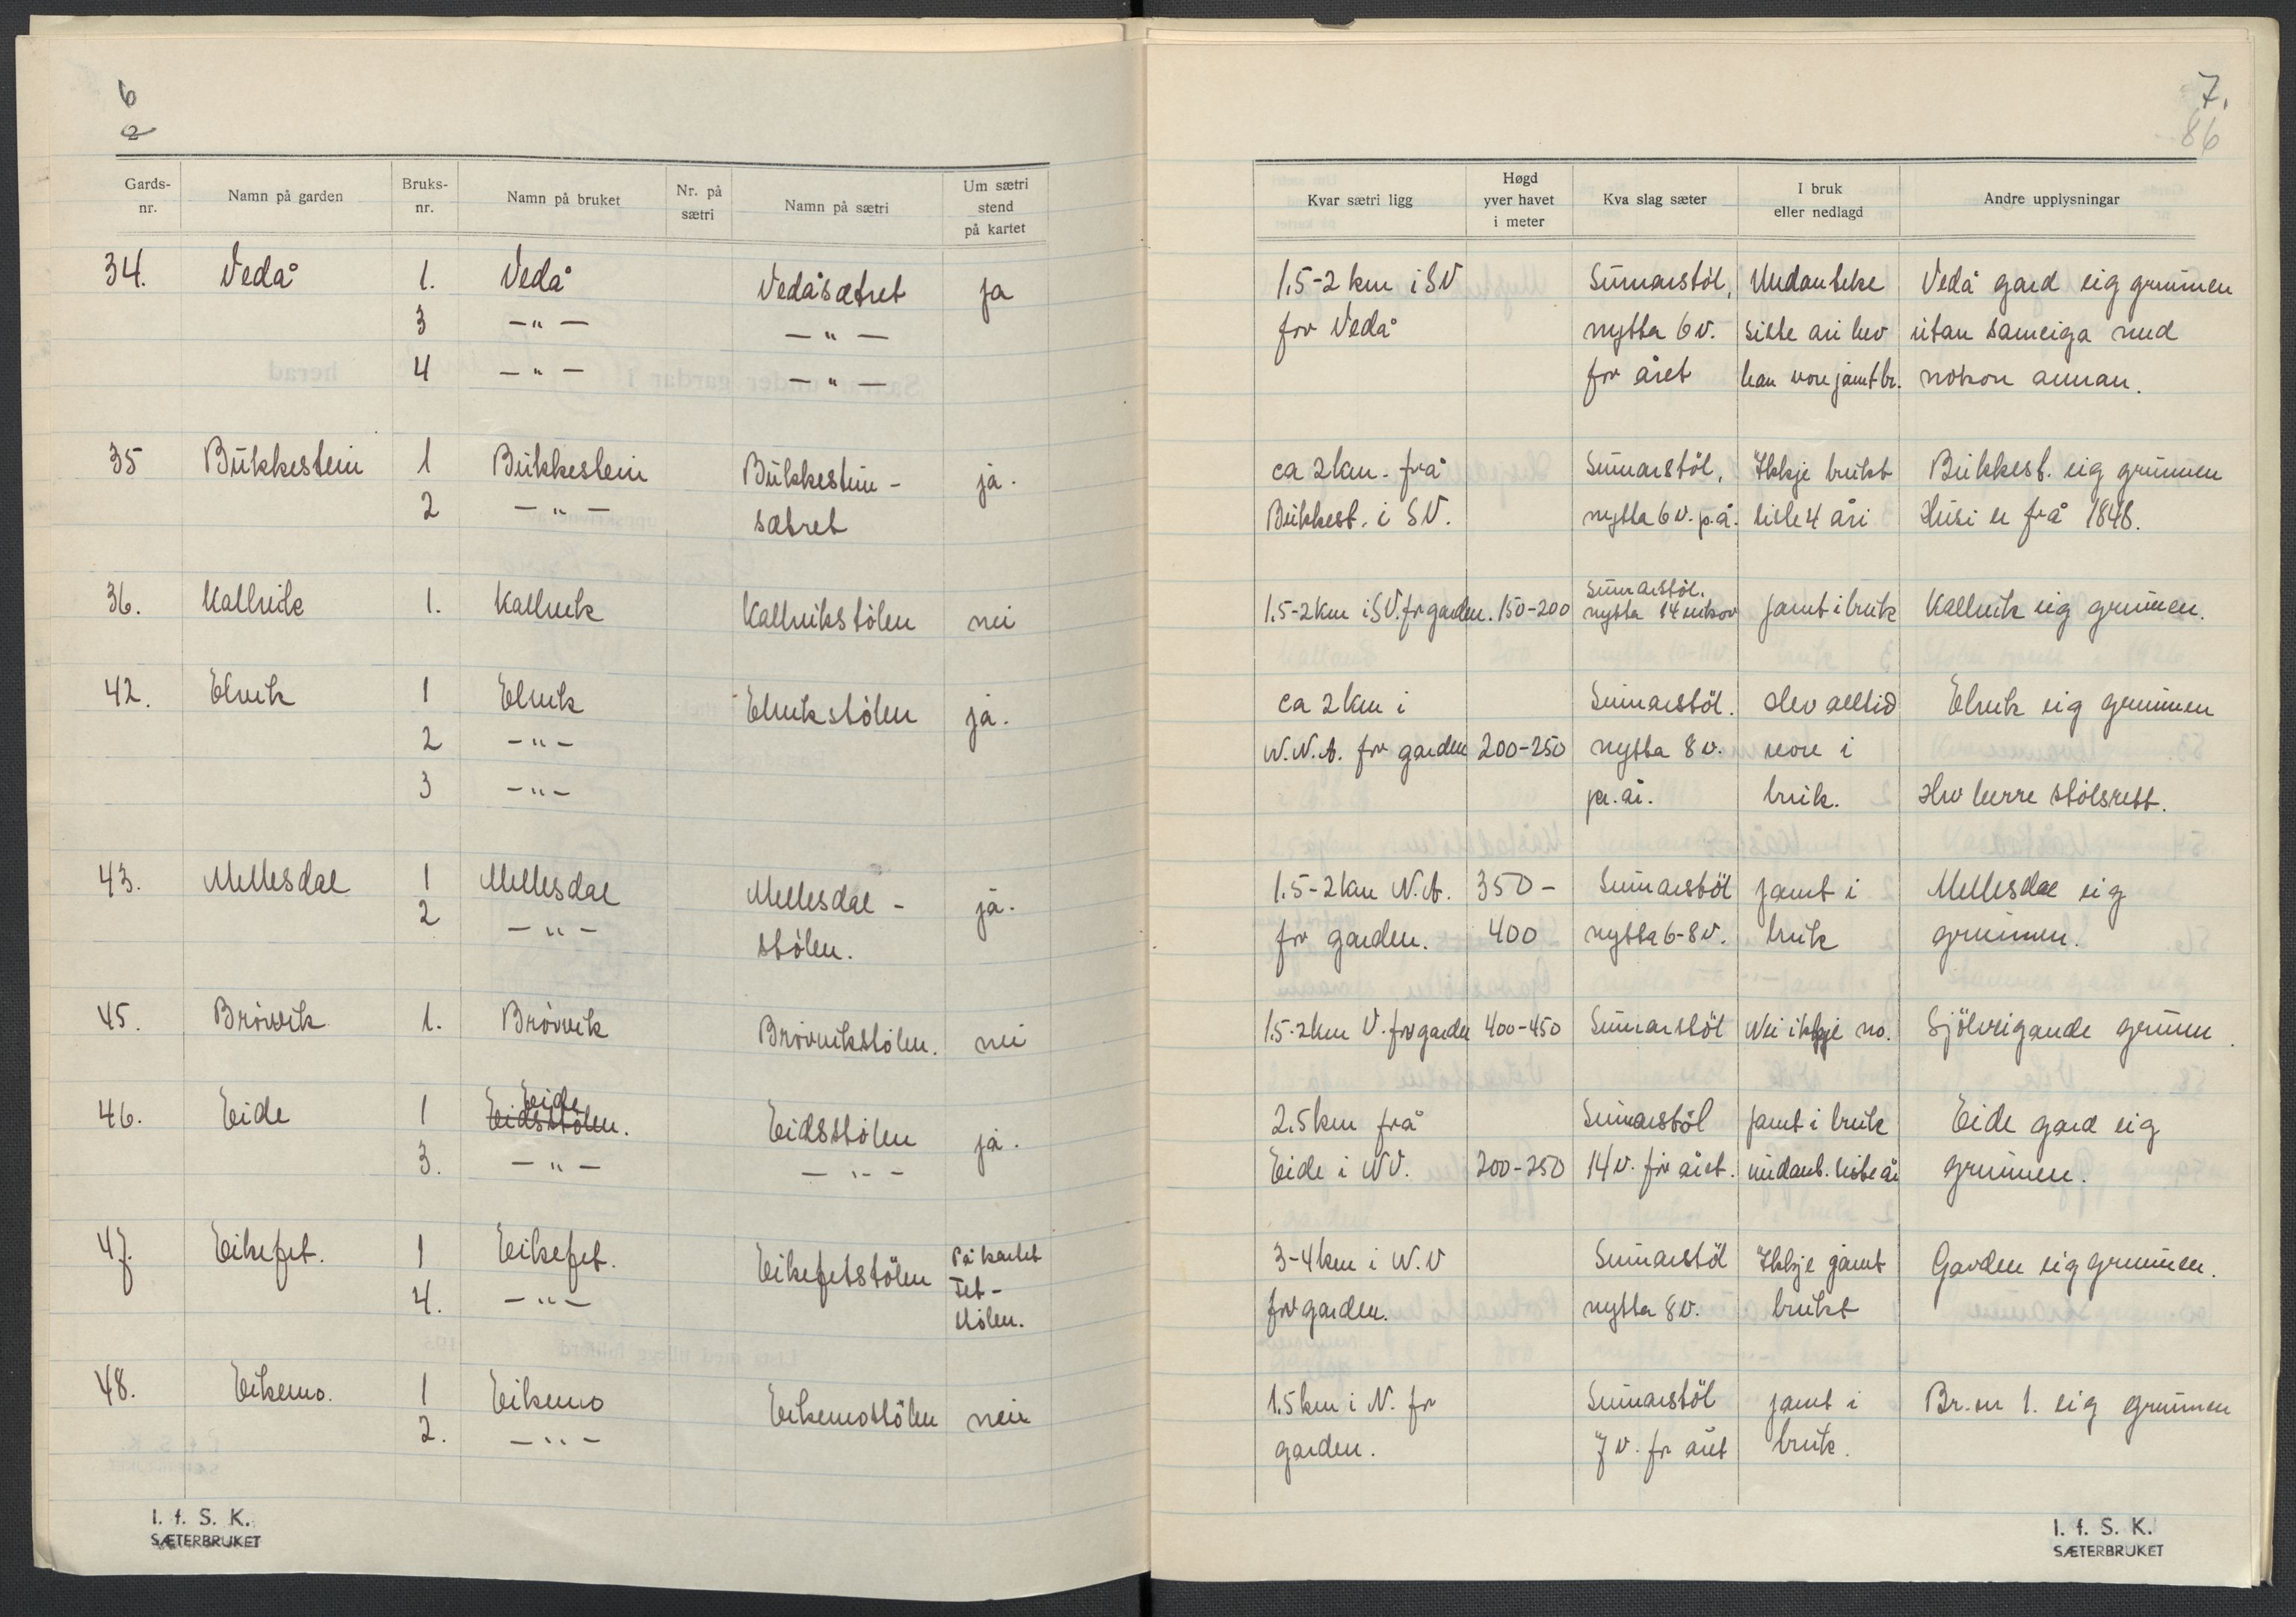 6
2
Gards-nr. Namn på garden Bruks-nr. Namn på bruket Nr. på sætri Namn på sætri Um sætri stend på kartet
34. Vedå 1. Vedå Vedåsætret ja
3 -"- -"-
4 -"- -"-
35 Bukkestein 1 Bukkestein Bukkestein- ja.
2 -"- sætret
36. Kallvik 1. Kallvik Kallvikstölen nei
42. Elvik 1 Elvik Elvikstölen ja.
2 -"-
3 -"-
43. Mellesdal 1 Mellesdal Mellesdal- ja.
2 -"- stölen.
45. Brövvik 1. Brövvik Brövvikstölen. nei
46. Eide 1 Eide Eidsstölen. Eidsstölen ja.
3. -"- -"-
47. Eikefet. 1 Eikefet. Eikefetstölen På kartet
4. -"- Fet-
stölen.
48. Eikemo. 1 Eikemo Eikemostölen nei
2. -"-
I. f. S. K.
SÆTERBRUKET
7.
86
Kvar sætri ligg Høgd yver havet i meter Kva slag sæter I bruk eller nedlagd Andre upplysningar
1.5-2 km i SV Sumarstöl, Undanteke Vedå gard eig grunnen
for Vedå nytta 6 v. siste åri hev utan sameiga med
for året han vore jamt br. nokon annan.
ca 2 km. frå Sumarstöl, Ikkje brukt Bukkest. eig grunnen
Bukkest. i SV. nytta 6 v. p.å. siste 4 åri Husi er frå 1848.
1.5-2 km i SV. fr garden. 150-200 Sumarstöl. nytta 14 vikor jamt i bruk Kallvik eig grunnen.
ca 2 km i Sumarstöl. Hev alltid Elvik eig grunnen
N.N.A. for garden 200-250 nytta 8 v. vore i
pr. år. bruk. Hev leverre stölsrett.
1.5-2 km N.A. 350- Sumarstöl jamt i Mellesdal eig
for garden. 400 nytta 6-8 v. bruk grunnen.
1.5-2 km V. for garden 400-450 Sumarstöl Nei ikkje no. Sjölveigande grunn.
2.5 km frå Sumarstöl jamt i bruk Eide gard eig
Eide i NV. 200-250 14 v. for året. undant. siste år grunnen.
3-4 km i N.V Sumarstöl Ikkje jamt Garden eig grunnen.
for garden. nytta 8 v. brukt
1.5 km i N. for Sumarstöl jamt i Br. nr 1. eig grunnen
garden. 7 v. fr året bruk.
I. f. S. K.
SÆTERBRUKET